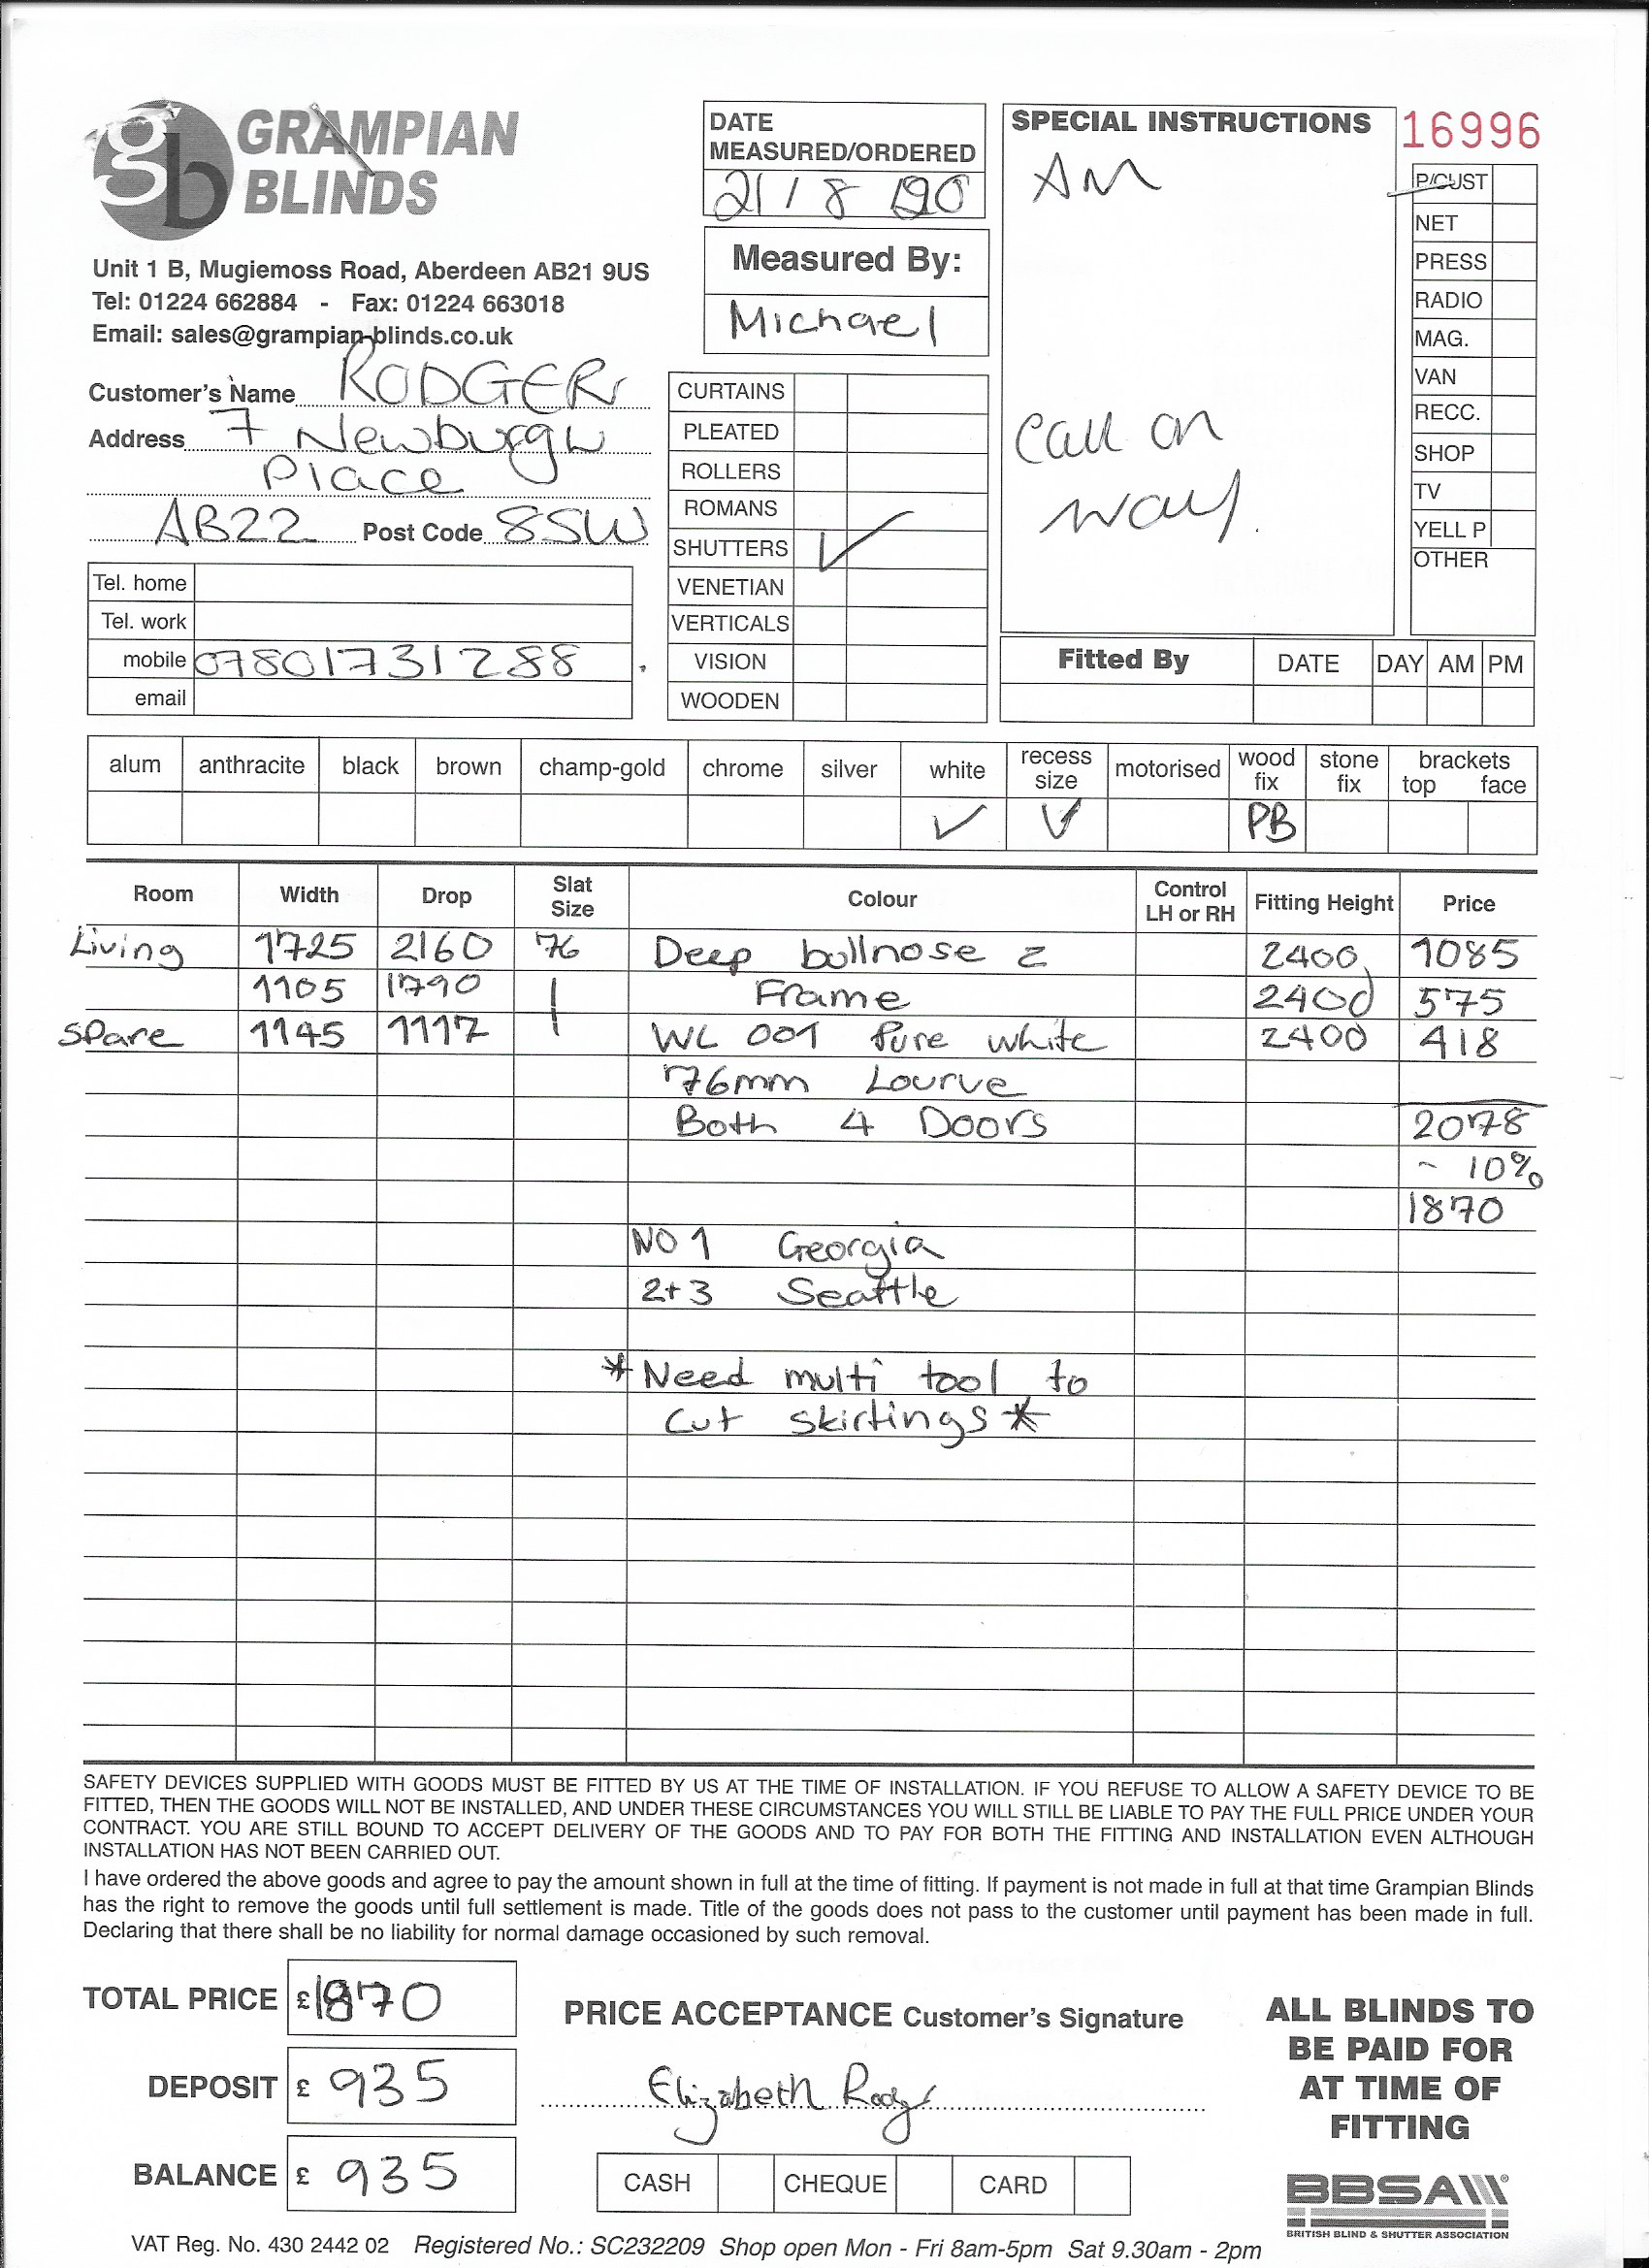 gb GRAMPIAN
BLINDS
Unit 1 B, Mugiemoss Road, Aberdeen AB21 9US
Tel: 01224 662884 - Fax: 01224 663018
Email: sales@grampian-blinds.co.uk
DATE
MEASURED/ORDERED
21/8
Measured By:
Michael
SPECIAL INSTRUCTIONS
AM
Call on
way.
16996
P/CUST
NET
PRESS
RADIO
MAG.
VAN
RECC.
SHOP
TV
YELL P
OTHER
Customer's Name RODGER
Address 7 Newburgh
Place
AB22 Post Code 8SW
Tel. home
Tel. work
mobile 07801731288
email
CURTAINS
PLEATED
ROLLERS
ROMANS
SHUTTERS ✓
VENETIAN
VERTICALS
VISION
WOODEN
Fitted By DATE DAY AM PM
alum anthracite black brown champ-gold chrome silver white recess size motorised wood fix stone fix brackets top face
✓ ✓ PB
Room Width Drop Slat Size Colour Control LH or RH Fitting Height Price
Living 1725 2160 76 Deep bullnose Z 2400 1085
1105 1790 | Frame 2400 575
Spare 1145 1117 | WL 001 Pure white 2400 418
76mm Lourve
Both 4 Doors 2078
- 10%
1870
NO 1 Georgia
2+3 Seattle
*Need multi tool to
cut skirtings*
SAFETY DEVICES SUPPLIED WITH GOODS MUST BE FITTED BY US AT THE TIME OF INSTALLATION. IF YOU REFUSE TO ALLOW A SAFETY DEVICE TO BE
FITTED, THEN THE GOODS WILL NOT BE INSTALLED, AND UNDER THESE CIRCUMSTANCES YOU WILL STILL BE LIABLE TO PAY THE FULL PRICE UNDER YOUR
CONTRACT. YOU ARE STILL BOUND TO ACCEPT DELIVERY OF THE GOODS AND TO PAY FOR BOTH THE FITTING AND INSTALLATION EVEN ALTHOUGH
INSTALLATION HAS NOT BEEN CARRIED OUT.
I have ordered the above goods and agree to pay the amount shown in full at the time of fitting. If payment is not made in full at that time Grampian Blinds
has the right to remove the goods until full settlement is made. Title of the goods does not pass to the customer until payment has been made in full.
Declaring that there shall be no liability for normal damage occasioned by such removal.
TOTAL PRICE £1870
DEPOSIT £ 935
BALANCE £ 935
PRICE ACCEPTANCE Customer's Signature
Elizabeth Rodger
CASH CHEQUE CARD
ALL BLINDS TO
BE PAID FOR
AT TIME OF
FITTING
BBSA
BRITISH BLIND & SHUTTER ASSOCIATION
VAT Reg. No. 430 2442 02 Registered No.: SC232209 Shop open Mon - Fri 8am-5pm Sat 9.30am - 2pm